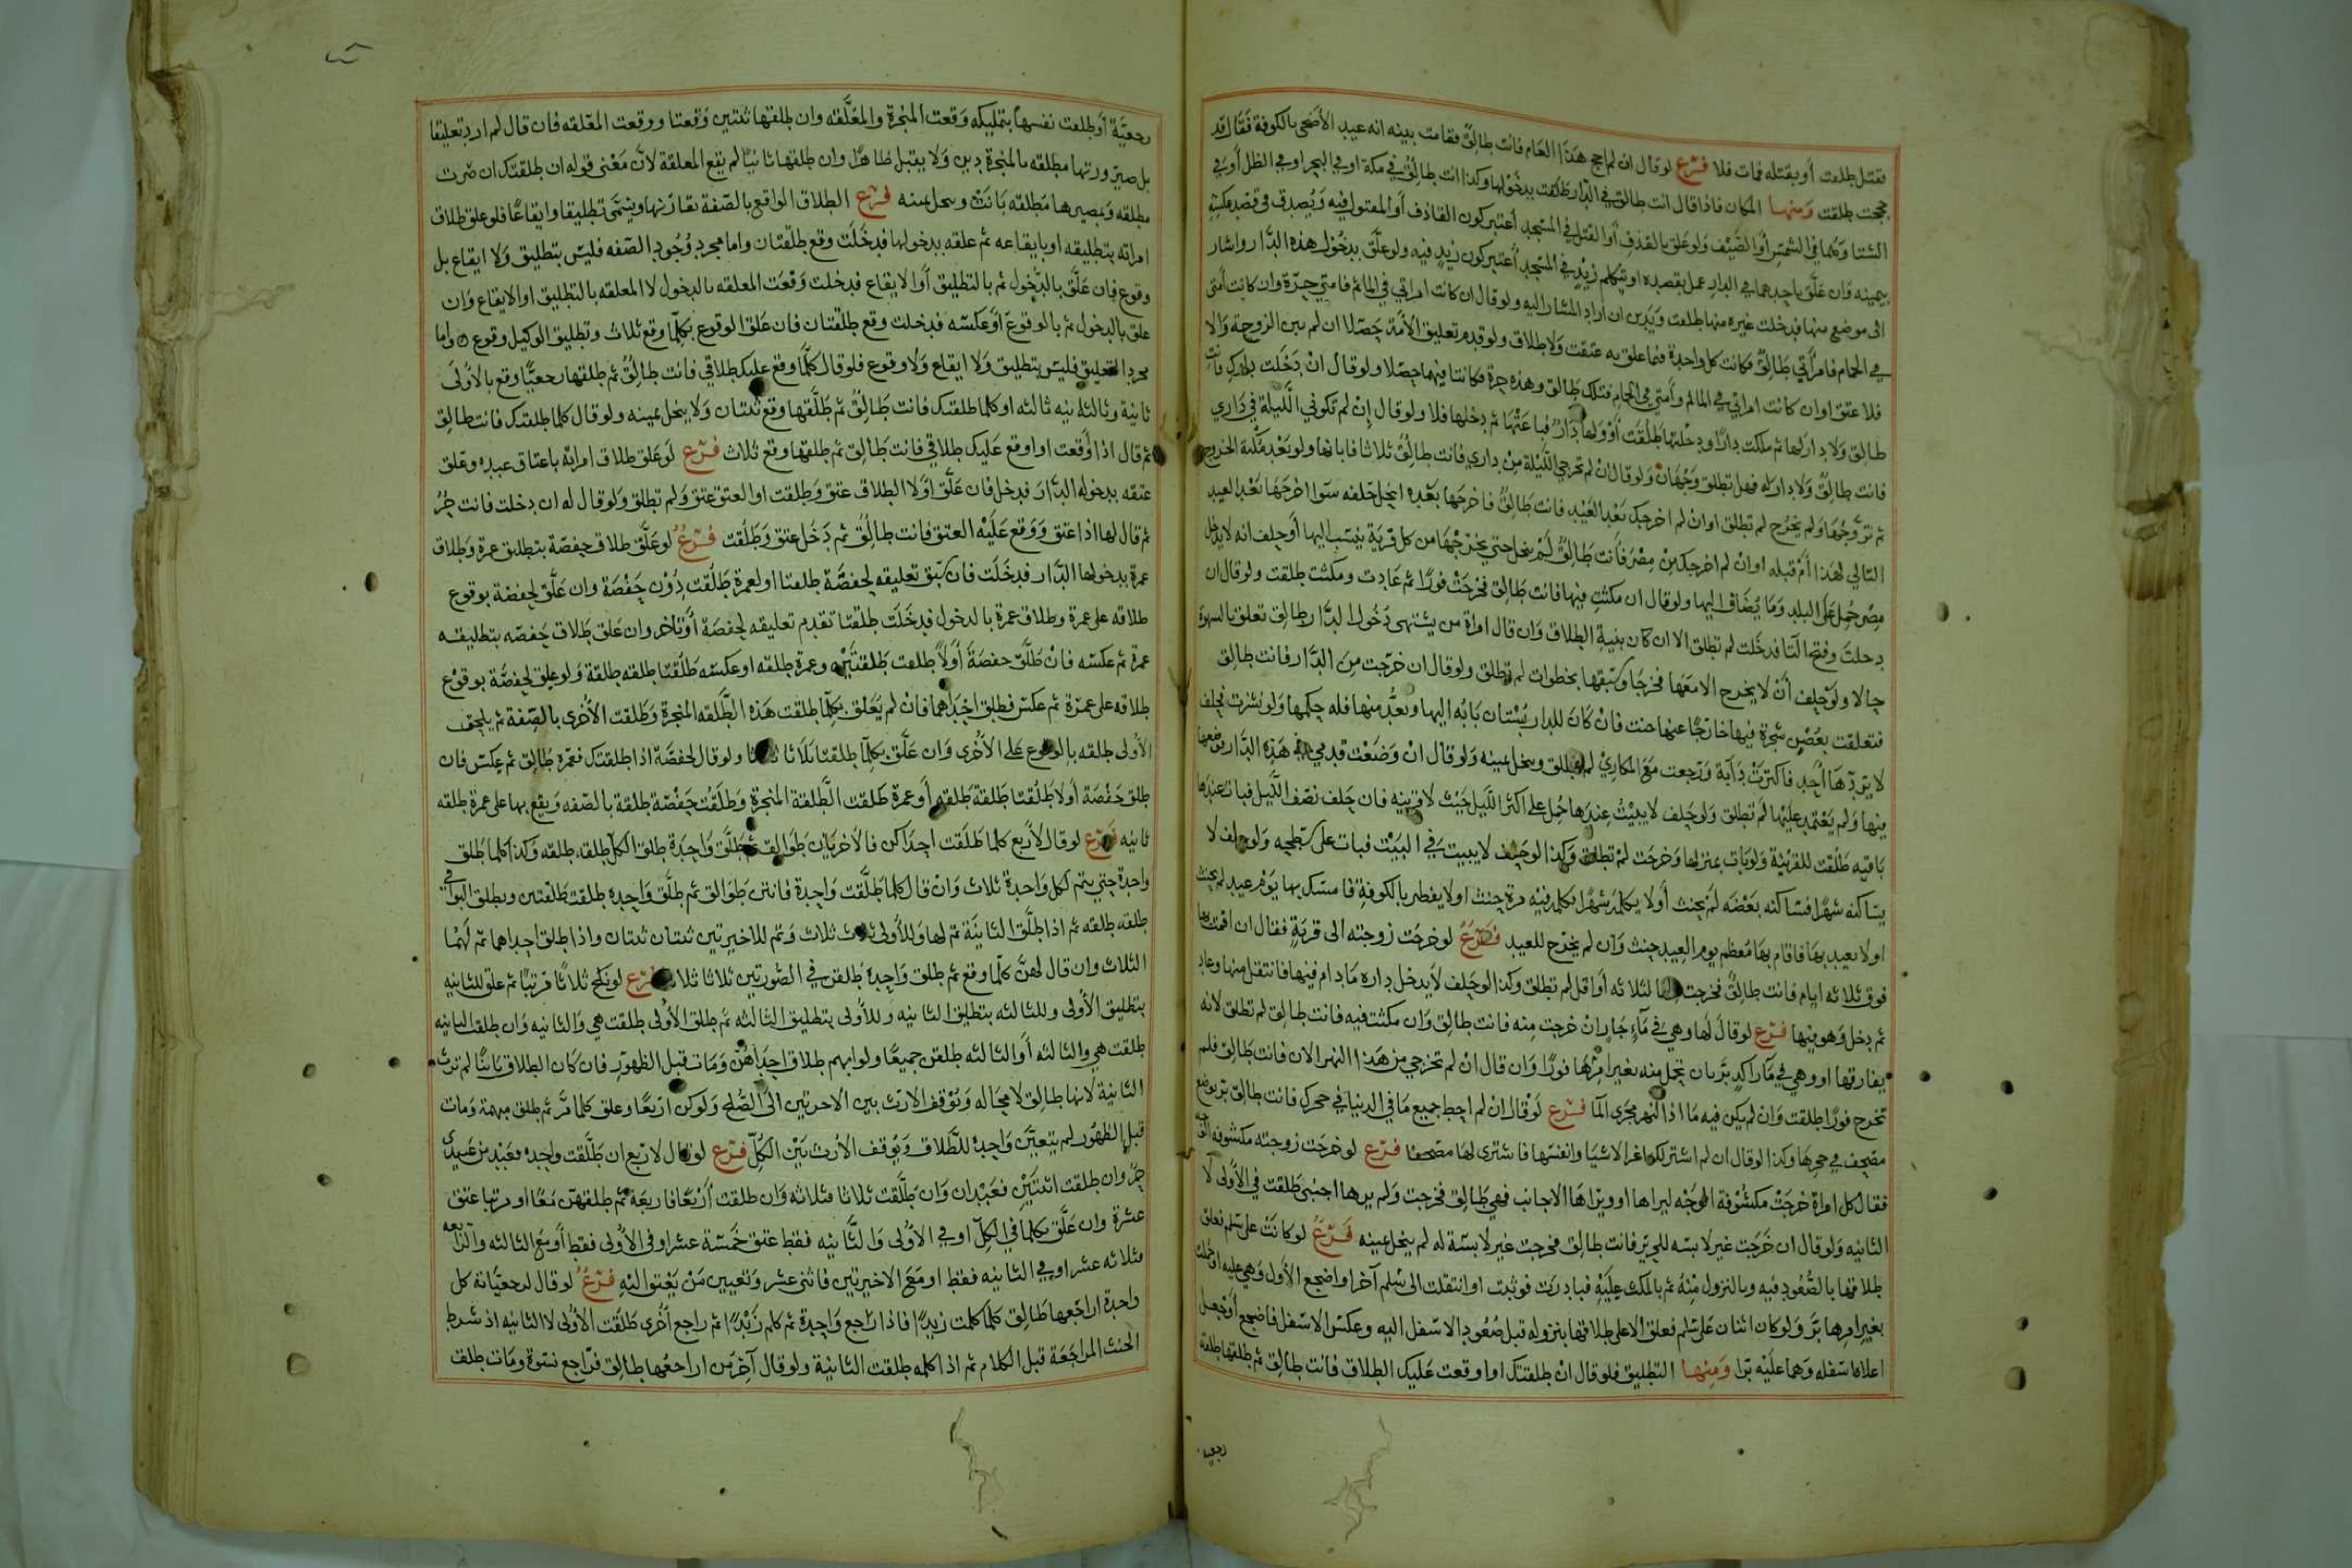 فقتل طلقت أو بقتله فمات فلا فرع لو قال ان لم احج هذا العام فانت طالق فقامت بينه انه عيد الأضحى بالكوفة فقال قد
حججت طلقت ومنها المكان فاذا قال انت طالق في الدار طلقت بدخولها وكذا انت طالق في مكة او في البحر او في الظل أو في
الشتا وهما في الشمس أو الصيف ولو علق بالقذف أو القتل في المسجد أعتبر كون القاذف أو المقتول فيه ويصدق في قصد عكسه
بيمينه وان علق باحدهما في الدار عمل بقصده او بتكلم زيد في المسجد أعتبر كون زيد فيه ولو علق بدخول هذه الدار واشار
الى موضع منها فدخلت غيره منها طلقت ويدين ان اراد المشار اليه ولو قال ان كانت امراتي في الماتم فامتي حرة وان كانت أمتي
في الحمام فامرأتي طالق فكانت كل واحدة فيما علق به عتقت ولا طلاق ولو قدم تعليق الأمة حصلا ان لم تبن الزوجة والا
فلا عتق او ان كانت امراتي في الماتم وأمتي في الحمام فتلك طالق وهذه حرة فكانتا فيهما حصلا ولو قال ان دخلت دارك فانت
طالق ولا دار لها ثم ملكت دارًا ودخلتها طلقت أو ولها دار فباعتها ثم دخلتها فلا ولو قال إن لم تكوني الليلة في داري
فانت طالق ولا دار له فهل تطلق وجهان ولو قال ان لم تخرجي الليلة من داري فانت طالق ثلاثا فابانها ولو بعد مكنة الخروج
ثم تزوجها ولم يخرج لم تطلق او ان لم اخرجك بعد العيد فانت طالق فاخرجها بعده انحل حلفه سوا اخرجها بعد العيد
التالي لهذا أم قبله او ان لم اخرجك من مصر فأنت طالق لم ينحل حتى يخرجها من كل قرية ينسب اليها أو حلف انه لا يدخل
مصر حمل على البلد وما يضاف اليها ولو قال ان مكثت فيها فانت طالق فخرجت فورًا ثم عادت ومكثت طلقت ولو قال ان
دخلت وفتح التا فدخلت لم تطلق الا ان كان بنية الطلاق وان قال امراة من يشتهي دخول الدار طالق تعلق بالشهوة
حالا ولو حلف أن لا يخرج الا معها فخرجا وسبقها بخطوات لم تطلق ولو قال ان خرجت من الدار فانت طالق
فتعلقت بغصن شجرة فيها خارجًا عنها حنث فان كان للدار بستان بابه اليها ويعد منها فله حكمها ولو نشزت فحلف
لا يردها أحد فاكترت دابة ورجعت مع المكاري لم تطلق وينحل يمينه ولو قال ان وضعت قدمي هذه الدار فوضعها
فيها ولم يعتمد عليها لم تطلق ولو حلف لا يبيت عندها حمل على اكثر الليل حيث لا قرينه فان حلف نصف الليل فبات عندها
باقيه طلقت للقرينة ولو بات بمنزلها وخرجت لم تطلق وكذا لو حلف لا يبيت في البيت فبات على سطحه ولو حلف لا
يساكنه شهرًا فساكنه بعضه لم يحنث أو لا يكلمه شهرًا فكلمه فيه مرة حنث اولا يفطر بالكوفة فامسك بها يوم عيد لم يحنث
اولا يعيد بها فاقام بها معظم يوم العيد حنث وان لم يخرج للعيد فرع لو خرجت زوجته الى قرية فقال ان اقمت بها
فوق ثلاثه ايام فانت طالق فخرجت لثلاثه أو اقل لم تطلق وكذا لو حلف لا يدخل داره ما دام فيها فانتقل منها وعاد
ثم دخل وهو فيها فرع لو قال لها وهي في ماء جار ان خرجت منه فانت طالق وان مكثت فيه فانت طالق لم تطلق لانه
يفارقها او وهي في ما راكد بر بان تحمل منه بغير امرها فورًا وان قال ان لم تخرجي من هذا النهر الان فانت طالق فلم
تخرج فورا طلقت وان لم يكن فيه ما اذ النهر مجرى الما فرع لو قال ان لم احط جميع ما في الدنيا في حجرك فانت طالق بر بوضع
مصحف في حجرها وكذا لو قال ان لم اشتر لك اعز الاشيا وانفسها فاشترى لها مصحفا فرع لو خرجت زوجته مكشوفة الوجه
فقال كل امراة خرجت مكشوفة الوجه ليراها او ويراها الاجانب فهي طالق فخرجت ولم يرها اجنبى طلقت في الأولى لا
الثانيه ولو قال ان خرجت غير لابسه للحرير فانت طالق فخرجت غير لابسة له لم ينحل يمينه فرع لو كانت على سلم فعلق
طلاقها بالصعود فيه وبالنزول منه ثم بالمكث عليه فبادرت فوثبت او انتقلت الى سلم آخر او اضجع الأول وهي عليه او حملت
بغير امرها بر ولو كان اثنان على سلم فعلق الاعلى طلاقها بنزوله قبل صعود الاسفل اليه وعكس الاسفل فاضجع أو جعل
اعلاه اسفله وهما عليه برا ومنها التطليق فلو قال ان طلقتك او اوقعت عليك الطلاق فانت طالق ثم طلقها طلقة
رجعية
رجعية أو طلقت نفسها بتمليكه وقعت المنجزة والمعلقه وان طلقها ثنتين وقعتا ووقعت المعلقه فان قال لم ارد تعليقا
بل صيرورتها مطلقه بالمنجزة دين ولا يقبل ظاهرًا وان طلقها ثانيًا لم يقع المعلقة لان معنى قوله ان طلقتك ان صرت
مطلقه وبمصيرها مطلقه بانت وينحل يمينه فرع الطلاق الواقع بالصفة يقارنها ويسمى تطليقا وايقاعًا فلو علق طلاق
امراته بتطليقه او بايقاعه ثم علقه بدخولها فدخلت وقع طلقتان واما مجرد وجود الصفه فليس بتطليق ولا ايقاع بل
وقوع فان علق بالدخول ثم بالتطليق أو الايقاع فدخلت وقعت المعلقه بالدخول لا المعلقه بالتطليق او الايقاع وان
علق بالدخول ثم بالوقوع أو عكسه فدخلت وقع طلقتان فان علق الوقوع بكلما وقع ثلاث وتطليق الوكيل وقوع واما
مجرد التعليق فليس بتطليق ولا ايقاع ولا وقوع فلو قال كلما وقع عليك طلاقي فانت طالق ثم طلقها رجعيًا وقع بالأولى
ثانية وبالثانيه ثالثه او كلما طلقتك فانت طالق ثم طلقها وقع ثنتان ولا ينحل يمينه ولو قال كلما طلقتك فانت طالق
ثم قال اذا أوقعت او اوقع عليك طلاقي فانت طالق ثم طلقها وقع ثلاث فرع لو علق طلاق امراته باعتاق عبده وعلق
عتقه بدخوله الدار فدخل فان علق اولا الطلاق عتق وطلقت او العتق عتق ولم تطلق ولو قال له ان دخلت فانت حر
ثم قال لها اذا عتق ووقع عليه العتق فانت طالق ثم دخل عتق وطلقت فرع لو علق طلاق حفصة بتطليق عمرة وطلاق
عمرة بدخولها الدار فدخلت فان سبق تعليقه لحفصة طلقتا او لعمرة طلقت دون حفصة وان علق لحفصة بوقوع
طلاقه على عمرة وطلاق عمرة بالدخول فدخلت طلقتا تقدم تعليقه لحفصة أو تاخر وان علق طلاق حفصه بتطليقه
عمرة ثم عكسه فان طلق حفصة أولًا طلقت طلقتين وعمرة طلقه او عكسه طلقتا طلقه طلقة ولو علق لحفصة بوقوع
طلاقه على عمرة ثم عكس فطلق احداهما فان لم يعلق بكلما طلقت هذه الطلقه المنجزة وطلقت الأخرى بالصفة ثم يلحق
الأولى طلقه بالوقوع على الأخرى وان علق بكلما طلقتا ثلاثا ثلاثا ولو قال لحفصة اذا طلقتك فعمرة طالق ثم عكس فان
طلق حفصة أولا طلقتا طلقة طلقه أو عمرة طلقت الطلقة المنجزة وطلقت حفصة طلقة بالصفه ويقع بها على عمرة طلقه
ثانيه فرع لو قال لأربع كلما طلقت احداكن فالأخريات طوالق ثم طلق واحدة طلق الكل طلقه طلقه وكذا كلما طلق
واحدة حتى يتم لكل واحدة ثلاث وان قال كلما طلقت واحدة فانتن طوالق ثم طلق واحدة طلقت طلقتين ويطلق البواقي
طلقه طلقه ثم اذا طلق الثانية تم لها وللأولى ثلاث ثلاث وتم للاخيرتين ثنتان ثنتان واذا طلق احداهما تم لهما
الثلاث وان قال لهن كلما وقع ثم طلق واحدة طلقن في الصورتين ثلاثا ثلاثا فرع لو نكح ثلاثًا مرتبًا ثم علق للثانيه
بتطليق الأولى وللثالثه بتطليق الثانيه وللأولى بتطليق الثالثه ثم طلق الأولى طلقت هي والثانيه وان طلق الثانيه
طلقت هي والثالثه أو الثالثه طلقن جميعًا ولو ابهم طلاق احداهن ومات قبل الظهور فان كان الطلاق باينًا لم ترث
الثانية لانها طالق لا محالة ويوقف الارث بين الاخرتين الى الصلح ولو كن اربعًا وعلق كما مر ثم طلق مبهمة ومات
قبل الظهور لم يتعين واحدة للطلاق ويوقف الأرث بين الكل فرع لو قال لاربع ان طلقت واحدة فعبد من عبيدي
حر وان طلقت اثنتين فعبدان وان طلقت ثلاثا فثلاثه وان طلقت أربعًا فاربعة ثم طلقهن معًا او مرتبا عتق
عشرة وان علق بكلما في الكل او في الاولى والثانيه فقط عتق خمسة عشر او في الأولى فقط أو مع الثالثه والرابعه
فثلاثه عشر او في الثانيه فقط او مع الاخيرتين فاثنى عشر وتعيين من يعتق اليه فرع لو قال لرجعياته كل
واحدة اراجعها طالق كلما كلمت زيدًا فاذا راجع واحدة ثم كلم زيدًا ثم راجع أخرى طلقت الأولى لا الثانيه اذ شرط
الحنث المراجعة قبل الكلام ثم اذا كلمه طلقت الثانية ولو قال آخر من اراجعها طالق فراجع نسوة ومات طلق